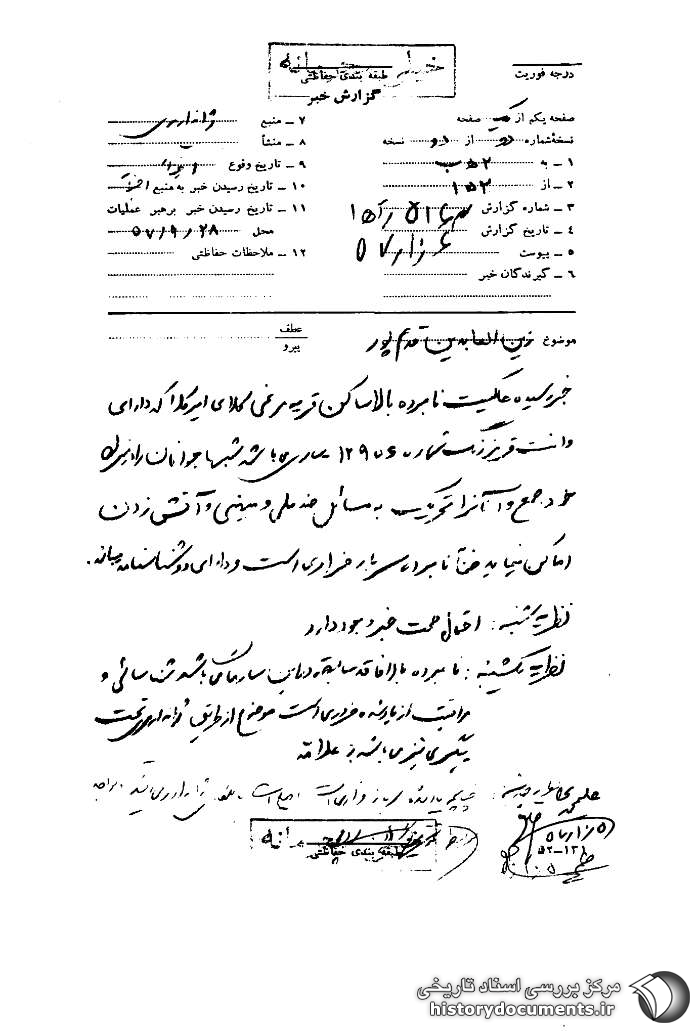 خیلی محرمانه
طبقه بندی حفاظتی
گزارش خبر
درجه فوریت
صفحه یکم از یک صفحه
نسخه شماره دو از دو نسخه
۱ ـ به ۵۲ب
۲ ـ از ۱۵۲
۳ ـ شماره گزارش
۴ ـ تاریخ گزارش
۵ ـ پیوست
۶ ـ گیرندگان خبر
۷ ـ منبع ژاندارمری
۸ ـ منشأ
۹ ـ تاریخ وقوع اخیرا
۱۰ ـ تاریخ رسیدن خبر به منبع اخیرا
۱۱ ـ تاریخ رسیدن خبر برهبر عملیات
محل ۵۷/۹/۲۸
۱۲ ـ ملاحظات حفاظتی
موضوع زین العابدین قدم پور
عطف
پیرو
خبر رسیده حاکیست نامبرده بالا ساکن قریه مرغی کلای امیرکلا که دارای
وانت قرمز رنگ شماره ۱۲۹۰۶ ساری باشد شبها جوانان را
خود جمع و آنانرا تحریک به مسائل ضد ملی و میهنی و آتش زدن
اماکن مینماید ضمنا نامبرده سرباز فراری است و دارای دو شناسنامه میباشد.
نظریه شنبه: احتمال صحت خبر وجود دارد
نظریه یکشنبه: نامبرده بالا فاقد سابقه در این سازمان باشد شناسائی و
مراقبت از نامبرده ضروری است موضوع از طریق ژاندارمری تحت
پیگیری نیز می باشد
نظریه چنانچه یاد شده سرباز فراری است
۵۲-۱۳
خیلی محرمانه
طبقه بندی حفاظتی
مرکز بررسی اسناد تاریخی
historydocuments.ir